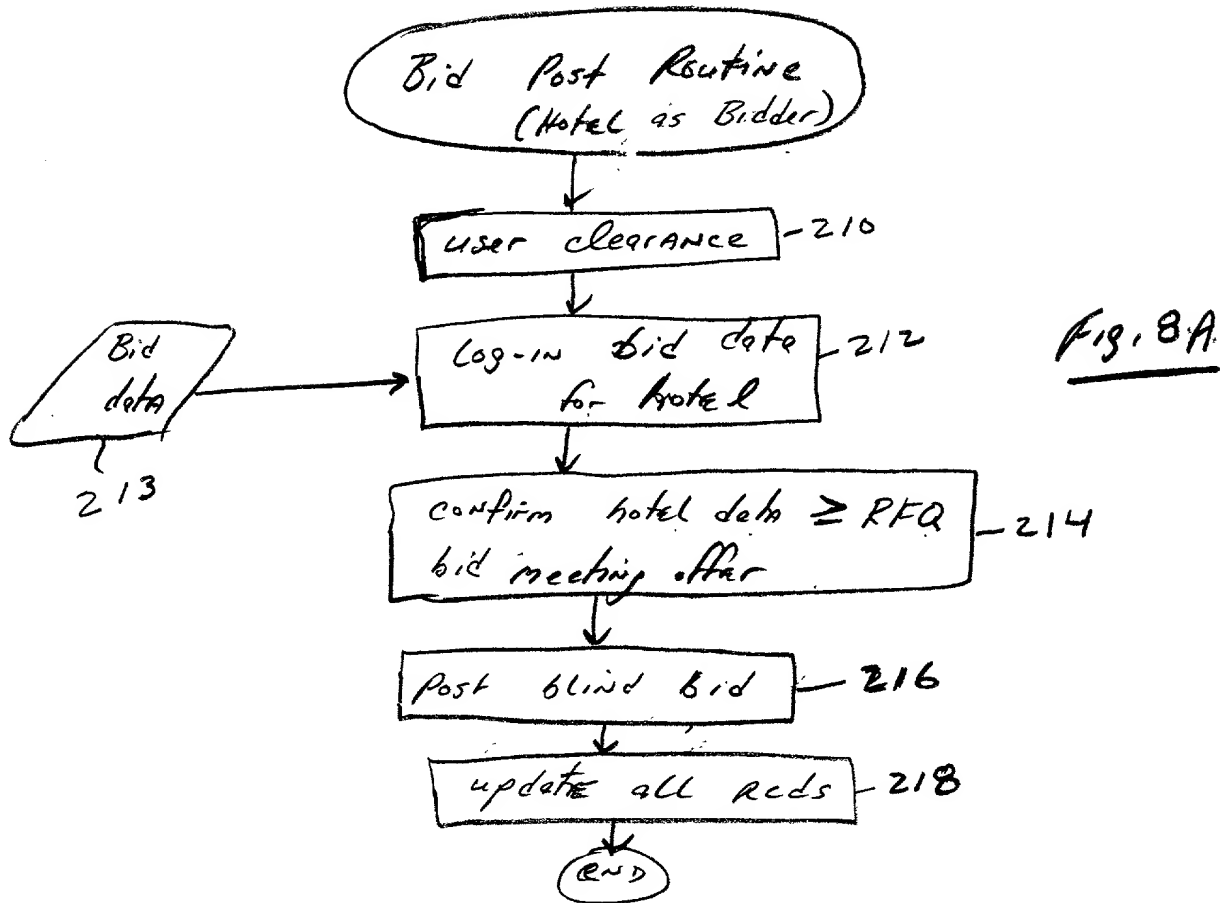 Bid Post Routine
(Hotel as Bidder)
user clearance
210
Log-in bid data
for hotel
212
Fig. 8A
Bid
data
213
confirm hotel data ≥ RFQ
bid meeting offer
214
Post blind bid
216
update all rcds
218
END